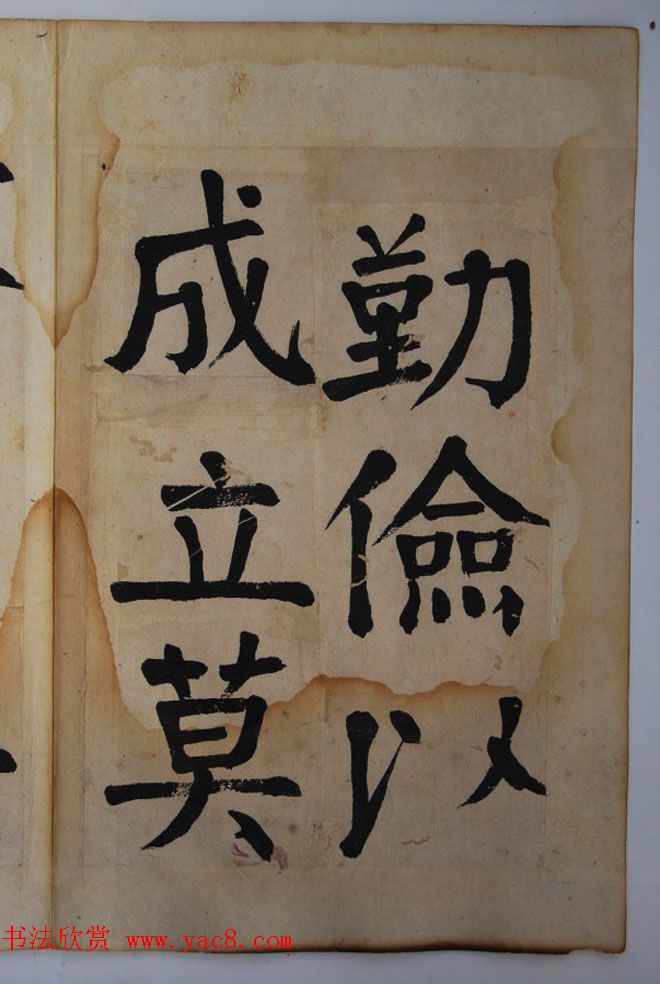 勤儉以
成立莫
书法欣赏 www.yac8.com